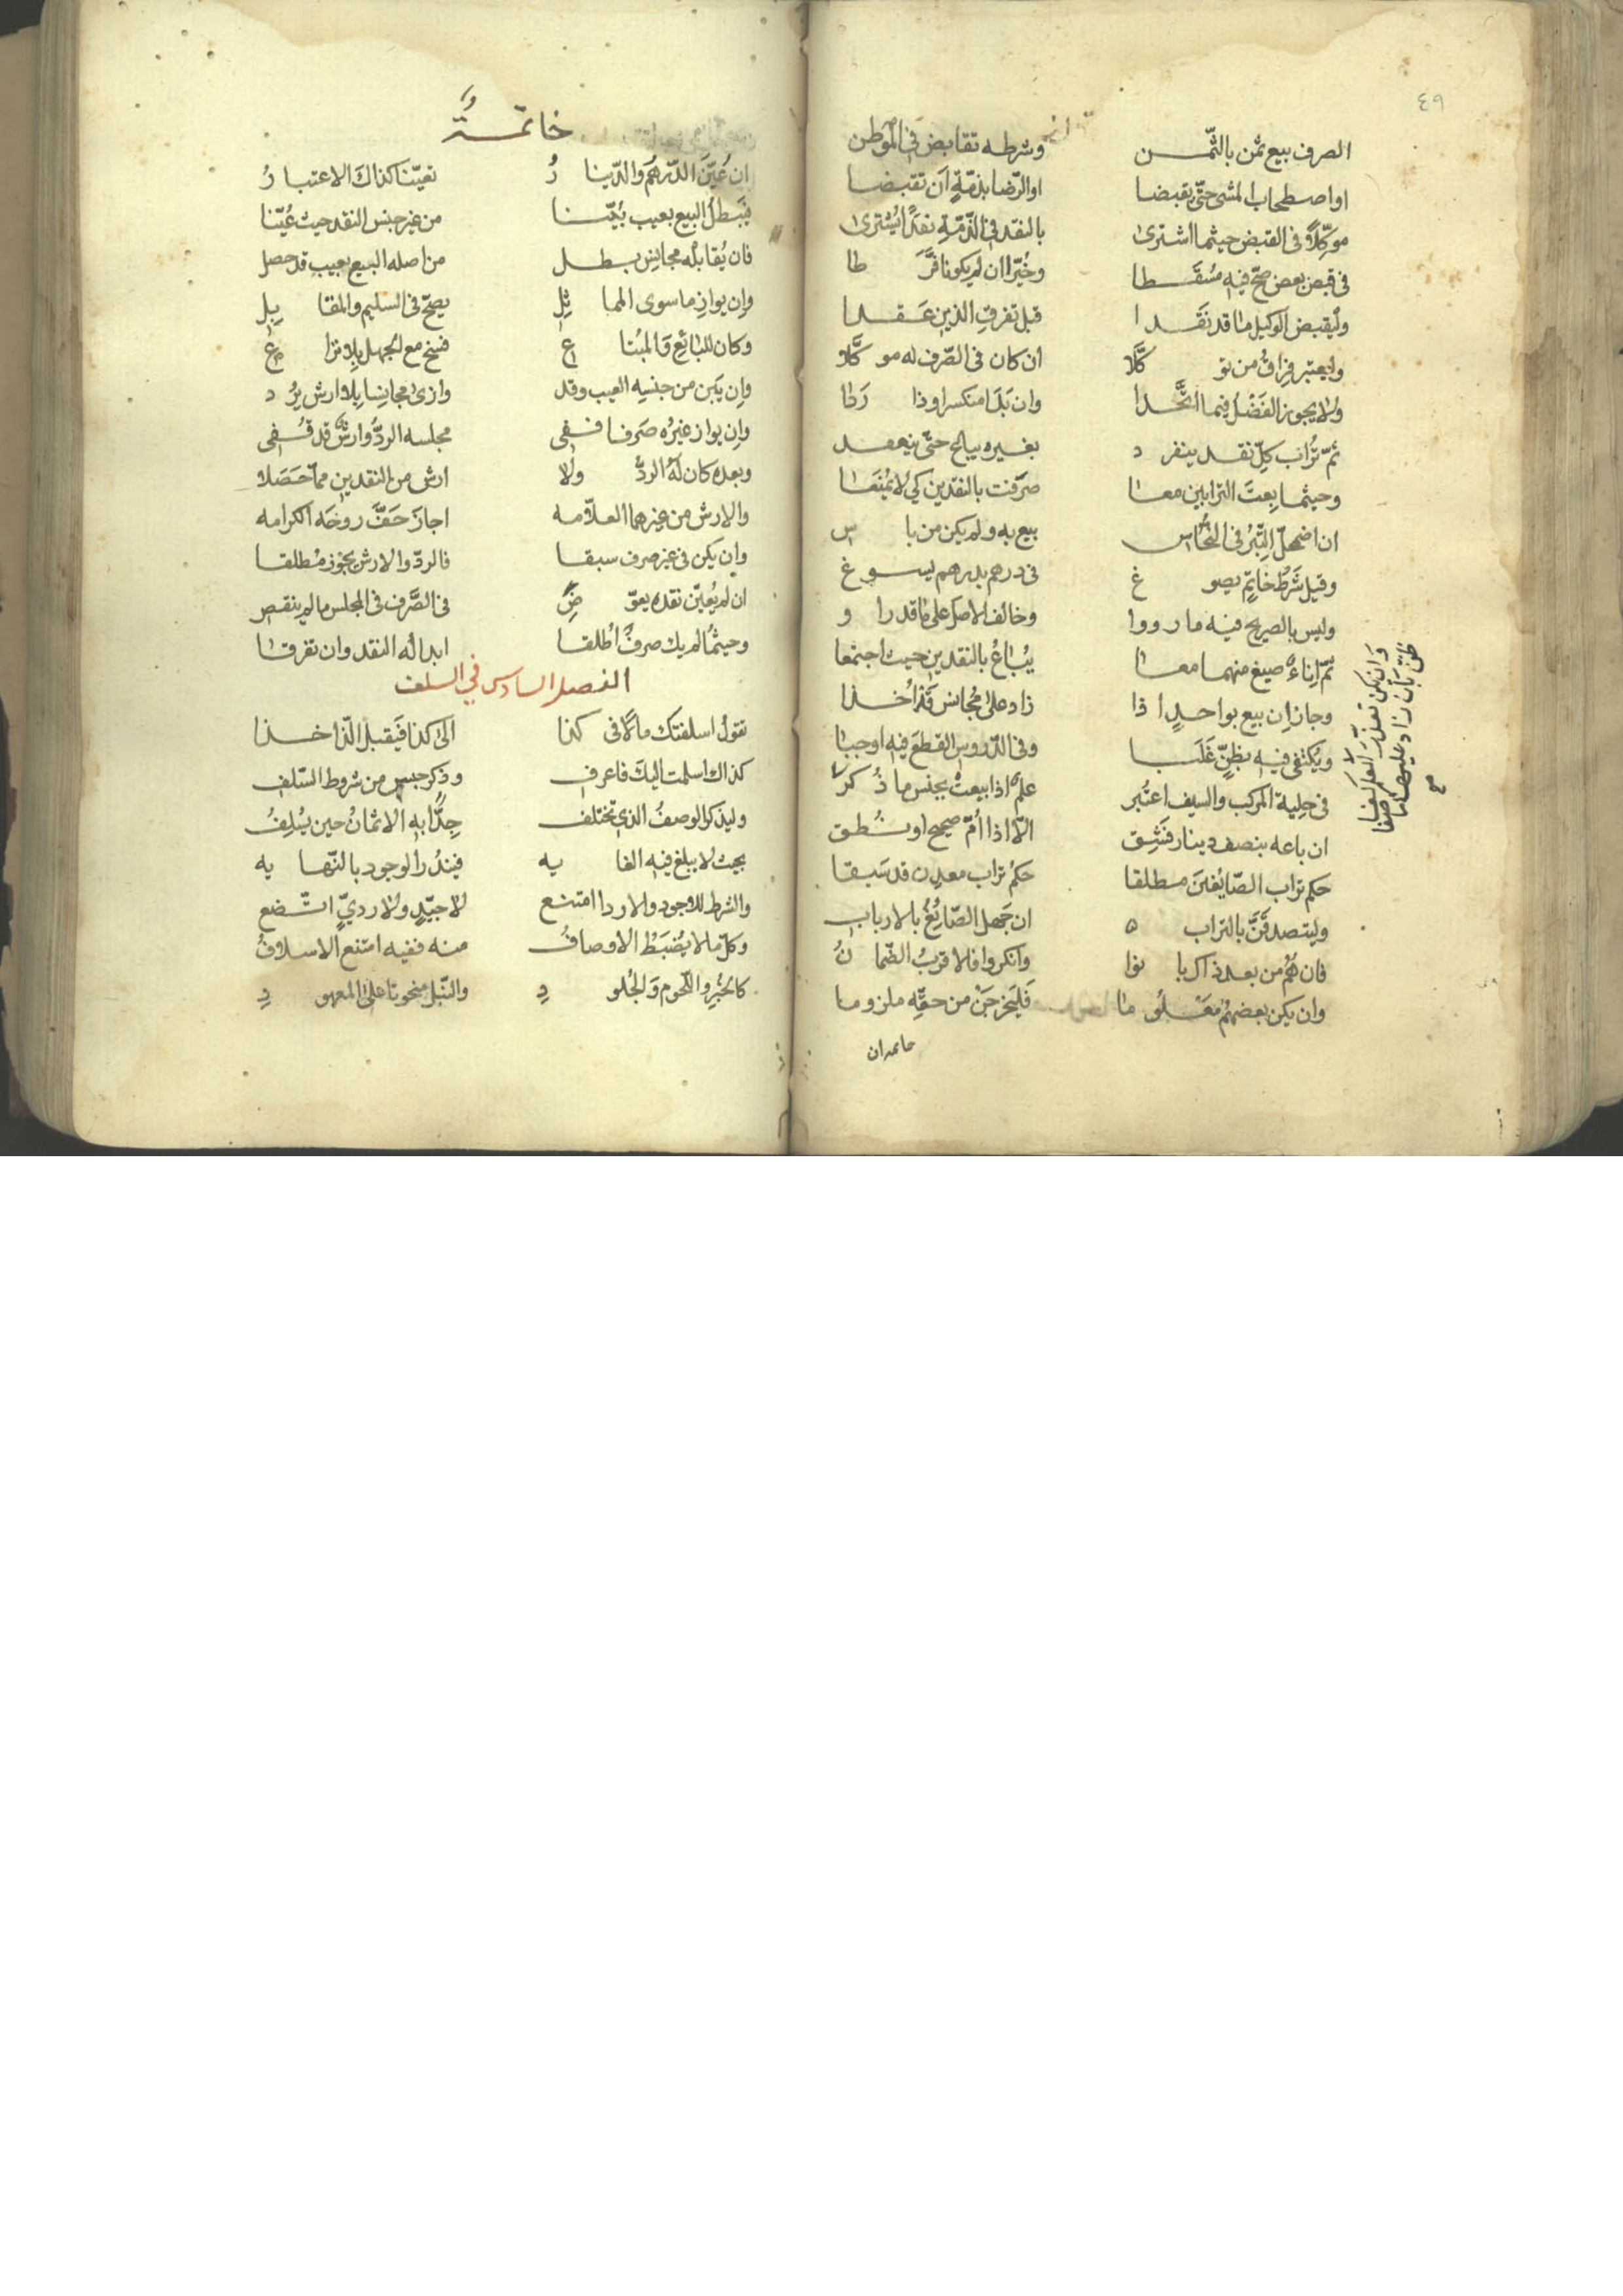 ٤٩
الصرف بيع ثمن بالثّمن وشرطه تقابض في الموطن
او اصطحاب المشى حتّى تقبضا او الرّضا بذمّة ان تقبضا
موكّلا في القبض حيثما اشترى بالنقد في الذّمّة نقدًا يشترى
في قبض بعض صحّ فيه مسقطا وخيّرا ان لم يكونا فرّطا
وليقبض الوكيل ما قد نقدا قبل تفرق الذين عقدا
ولا يعتبر فراق من توكّلا ان كان في الصّرف له موكّلا
ولا يجوز الفضل فيما اتّحدا وان بدا منكسرا وذا ردا
ثمّ تراب كلّ نقد ينفرد بغيره يباع حتّى ينعقد
وحيثما بعت الترابين معا صرّفت بالنقدين كي لا يمنعا
ان اضمحلّ التّبر في النحاس بيع به ولم يكن من باس
وقيل شرط خاتم يصوغ في درهم بدرهم يسوغ
وليس بالصريح فيه ما رووا وخالف الاصل على ما قدرا و
ثمّ اناء صيغ منهما معا يباع بالنقدين حيث اجتمعا
وجاز ان بيع بواحد اذا زاد على مجانس قد اخذا
ويكتفى فيه بظنّ غلبا وفي الدّروس القطع فيه اوجبا
في حلية المركب والسيف اعتبر علم اذا بيعت بجنس ما ذكر
ان باعه بنصف دينار فشق الّا اذا امّ صحيح او نطق
حكم تراب الصّايغين مطلقا حكم تراب معدن قد سبقا
وليتصدقنّ بالتراب ان جهل الصّايغ بالارباب
فان هم من بعد ذاك بانوا وانكروا فلا قرب الضّمان
وان يكن بعضهم معلوما فليخرجن من حقّه ملزوما
وان يكن تعذّر العلم كفا
ظنّ بأن زاد عليهما صفا
صح
خاتمة ان
خاتمة
ان عيّن الدّرهم والدّينار تعيّنا كذاك الاعتبار
فيبطل البيع بعيب بيّنا من غير جنس النقد حيث عيّنا
فان يقابله مجانس بطل من اصله البيع بعيب قد حصل
وان يوازِ ما سوى المماثل يصحّ في السليم والمقابل
وكان للبائع والمبتاع فسخ مع الجهل بلا نزاع
وان يبن من جنسه العيب وقد وازى مجانسا بلا ارش يرد
وان يواز غيره صرفا ففى مجلسه الردّ وارش قد قفى
وبعده كان له الردّ ولا ارش من النقدين ممّا حصلا
والارش من غيرهما العلّامه اجاز حفّ روحه الكرامه
وان يكن في غير صرف سبقا فالردّ والارش بجوز مطلقا
ان لم يعيّن نقده يعوّض في الصّرف في المجلس ما لم ينقص
وحيثما لم يك صرف اطلقا ابداله النقد وان تفرقا
الفصل السادس في السلف
تقول اسلفتك مالا في كذا الى كذا فيقبل الّذ اخذا
كذاك اسلمت اليك فاعرف وذكر جنس من شروط السّلف
وليذكر الوصف الذي تختلف جدًّا به الاثمان حين يسلف
بحيث لا يبلغ فيه الغايه فيندر الوجود بالنّهايه
والشرط للاجود والاردا امتنع لا جيّد ولا رديّ اتّضع
وكلّ ما لا يضبط الاوصاف منه ففيه امتنع الاسلاف
كالخبز واللّحوم والجلود والنّبل منحوتا على المعهود